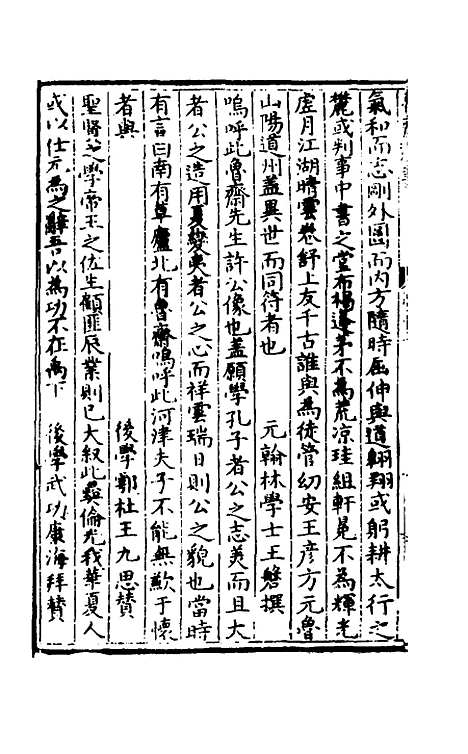 氣和而志剛外圓而内方隨時屈伸與道翱翔或躬耕太行之
麓或判事中書之堂布褐蓬茅不為荒凉珪組軒冕不為輝光
虛月江湖晴雲卷舒上友千古誰與為徒管幼安王彦方元魯
山陽道州蓋異世而同符者也　元翰林學士王磐撰
嗚呼此魯齋先生許公像也蓋願學孔子者公之志美而且大
者公之造用夏變夷者公之心而祥雲瑞日則公之貌也當時
有言曰南有草廬北有魯齋嗚呼此河津夫子不能無歉于懷
者與　後學鄠杜王九思贊
聖賢之學帝王之佐生顛匪辰業則已大叙此彝倫光我華夏人
或以仕元為之辭吾以為功不在禹下　後學武功康海拜贊